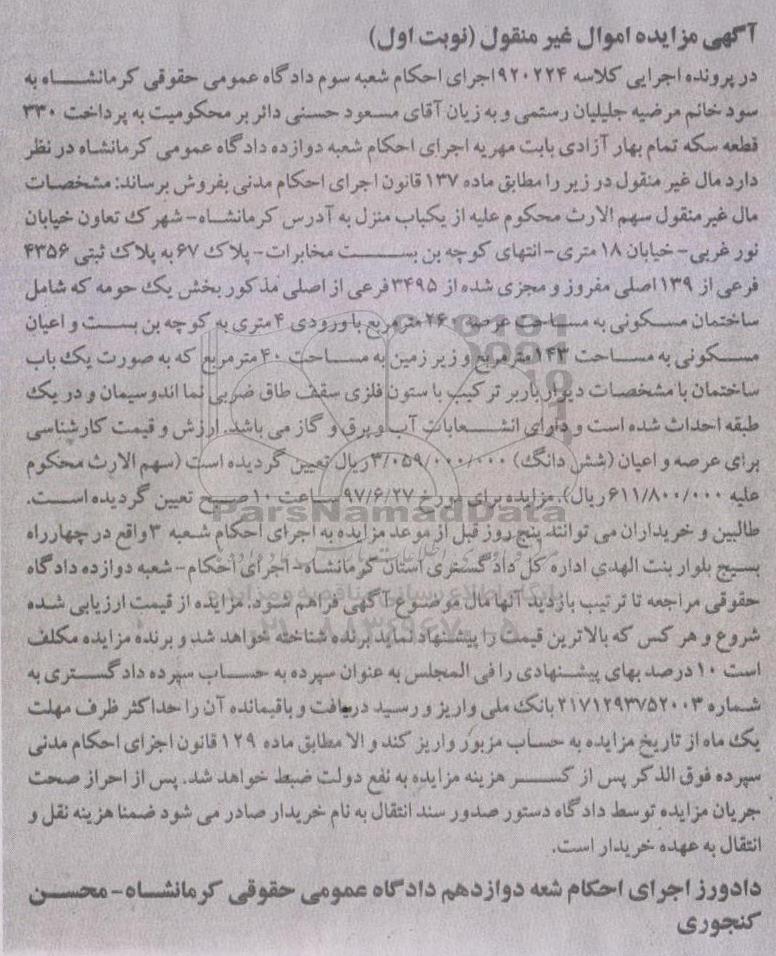 آگهی مزایده اموال غیر منقول (نوبت اول)
در پرونده اجرایی کلاسه ۹۲۰۲۲۴اجرای احکام شعبه سوم دادگاه عمومی حقوقی کرمانشاه به
سود خانم مرضیه جلیلیان رستمی و به زیان آقای مسعود حسنی دائر بر محکومیت به پرداخت ۳۳۰
قطعه سکه تمام بهار آزادی بابت مهریه اجرای احکام شعبه دوازده دادگاه عمومی کرمانشاه در نظر
دارد مال غیر منقول در زیر را مطابق ماده ۱۳۷ قانون اجرای احکام مدنی بفروش برساند: مشخصات
مال غیرمنقول سهم الارث محکوم علیه از یکباب منزل به آدرس کرمانشاه- شهرک تعاون خیابان
نور غربی- خیابان ۱۸ متری- انتهای کوچه بن بست مخابرات- پلاک ۶۷ به پلاک ثبتی ۴۳۵۶
فرعی از ۱۳۹ اصلی مفروز و مجزی شده از ۳۴۹۵ فرعی از اصلی مذکور بخش یک حومه که شامل
ساختمان مسکونی به مساحت عرصه ۲۶۰ مترمربع با ورودی ۴ متری به کوچه بن بست و اعیان
مسکونی به مساحت ۱۴۳ مترمربع و زیر زمین به مساحت ۴۰ مترمربع که به صورت یک باب
ساختمان با مشخصات دیوار باربر ترکیب با ستون فلزی سقف طاق ضربی نما اندوسیمان و در یک
طبقه احداث شده است و دارای انشعابات آب و برق و گاز می باشد. ارزش و قیمت کارشناسی
برای عرصه و اعیان (شش دانگ) ۳/۰۵۹/۰۰۰/۰۰۰ ریال تعیین گردیده است (سهم الارث محکوم
علیه ۶۱۱/۸۰۰/۰۰۰ ریال). مزایده برای مورخ ۹۷/۶/۲۷ ساعت ۱۰ صبح تعیین گردیده است.
طالبین و خریداران می توانند پنج روز قبل از موعد مزایده به اجرای احکام شعبه ۳ واقع در چهارراه
بسیج بلوار بنت الهدی اداره کل دادگستری استان کرمانشاه- اجرای احکام- شعبه دوازده دادگاه
حقوقی مراجعه تا ترتیب بازدید آنها مال موضوع آگهی فراهم شود. مزایده از قیمت ارزیابی شده
شروع و هر کس که بالاترین قیمت را پیشنهاد نماید برنده شناخته خواهد شد و برنده مزایده مکلف
است ۱۰ درصد بهای پیشنهادی را فی المجلس به عنوان سپرده به حساب سپرده دادگستری به
شماره ۲۱۷۱۲۹۳۷۵۲۰۰۳ بانک ملی واریز و رسید دریافت و باقیمانده آن را حداکثر ظرف مهلت
یک ماه از تاریخ مزایده به حساب مزبور واریز کند و الا مطابق ماده ۱۲۹ قانون اجرای احکام مدنی
سپرده فوق الذکر پس از کسر هزینه مزایده به نفع دولت ضبط خواهد شد. پس از احراز صحت
جریان مزایده توسط دادگاه دستور صدور سند انتقال به نام خریدار صادر می شود ضمنا هزینه نقل و
انتقال به عهده خریدار است.
دادورز اجرای احکام شعه دوازدهم دادگاه عمومی حقوقی کرمانشاه- محسن
کنجوری
ParsNamadData
پایگاه اطلاع رسانی مناقصه و مزایده